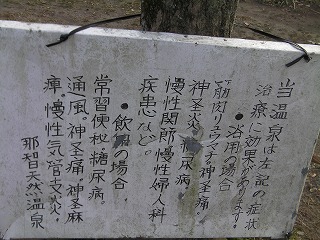 当温泉は左記の症状
治療に効果があります。
●浴用の場合
筋肉リュウマチ。神圣痛。
神圣炎。糖尿病。
慢性関節。慢性婦人科
疾患など。
●飲用の場合
常習便秘。糖尿病。
通風。神圣痛。神圣麻
痺。慢性気管支炎。
那智天然温泉